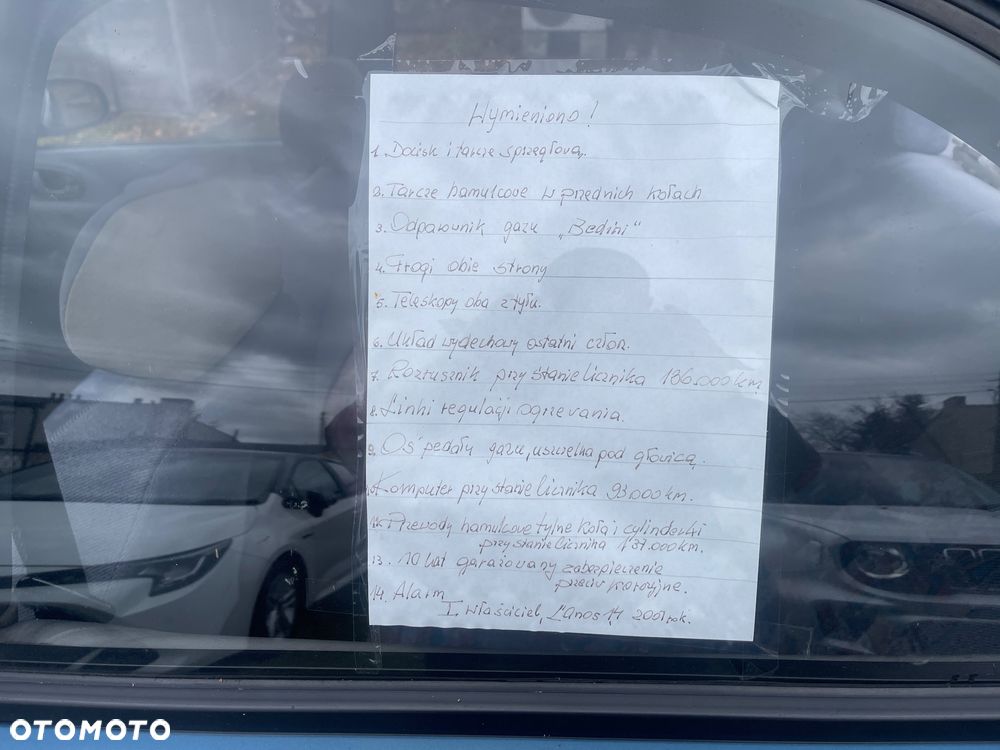 Wymieniono!
1. Docisk i tarcze sprzęgłową.
2. Tarcze hamulcowe w przednich kołach
3. Odparownik gazu „Bedini"
4. Progi obie strony
5. Teleskopy oba z tyłu.
6. Układ wydechowy ostatni człon.
7. Rozrusznik przy stanie licznika 136.000 km.
8. Linki regulacji ogrzevania.
9. Oś pedału gazu, uszczelka pod głowicą.
Komputer przy stanie licznika 93.000 km.
Przewody hamulcowe tylne koła i cylinderki
przy stanie licznika 137.000 km.
13. 10 lat garażowany zabezpieczenie
przeciw korozyjne.
14. Alarm
I właściciel, Lanos 2001 rok.
OTOMOTO